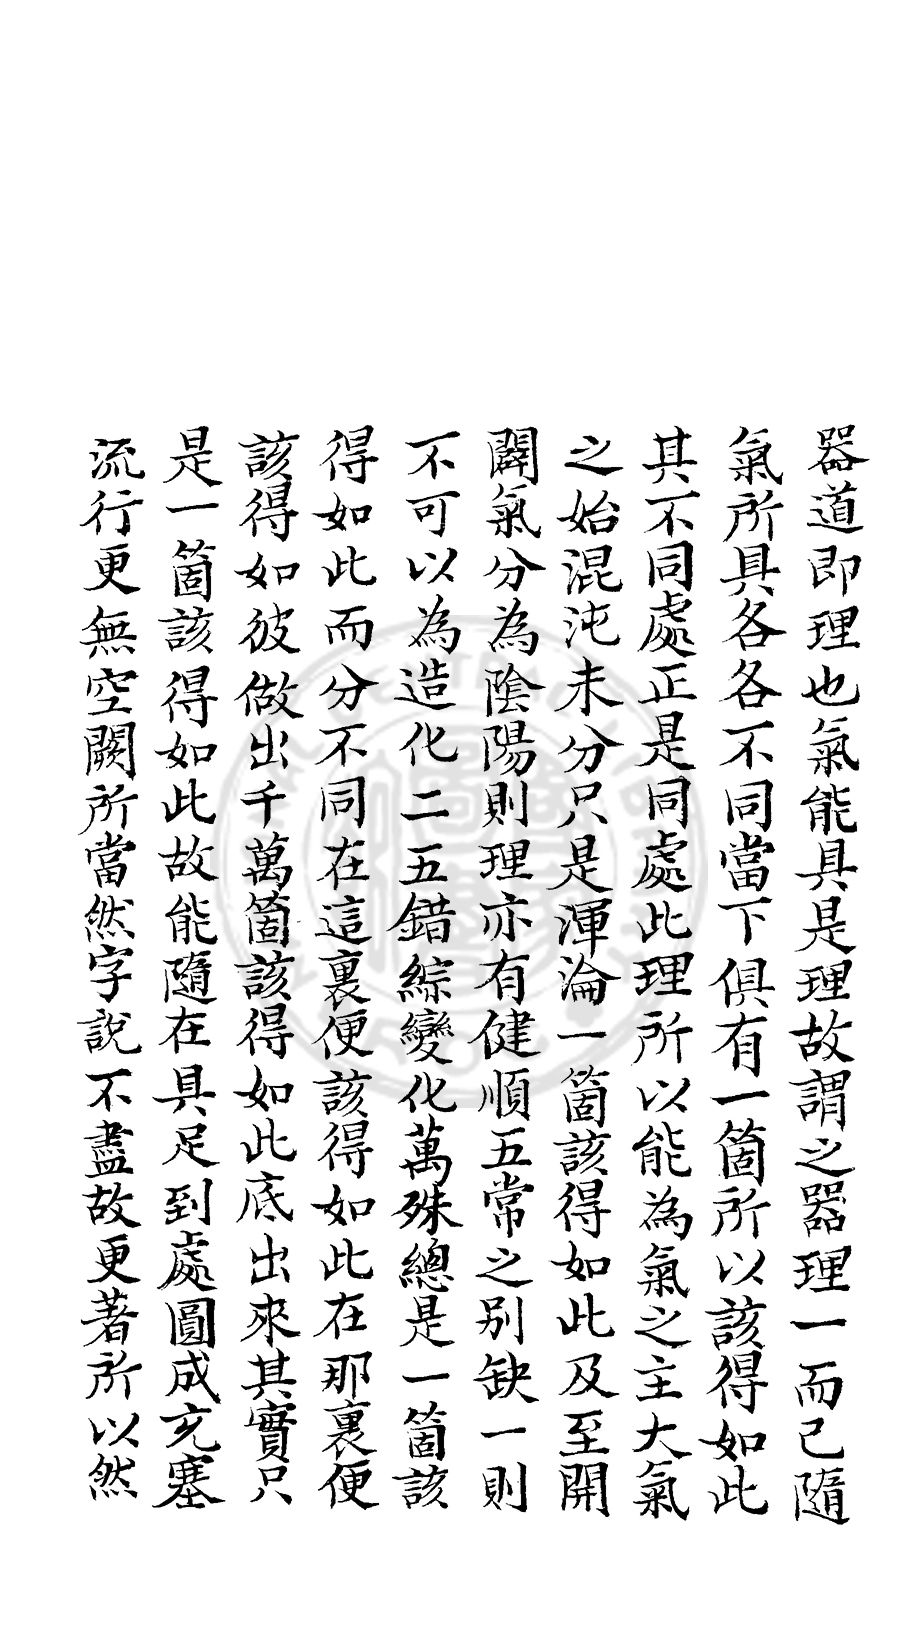 器道即理也氣能具是理故謂之器理一而已隨
氣所具各各不同當下俱有一箇所以該得如此
其不同處正是同處此理所以能為氣之主大氣
之始混沌未分只是渾淪一箇該得如此及至開
闢氣分為陰陽則理亦有健順五常之別缺一則
不可以為造化二五錯綜變化萬殊總是一箇該
得如此而分不同在這裏便該得如此在那裏便
該得如彼做出千萬箇該得如此底出來其實只
是一箇該得如此故能隨在具足到處圓成充塞
流行更無空闕所當然字說不盡故更著所以然